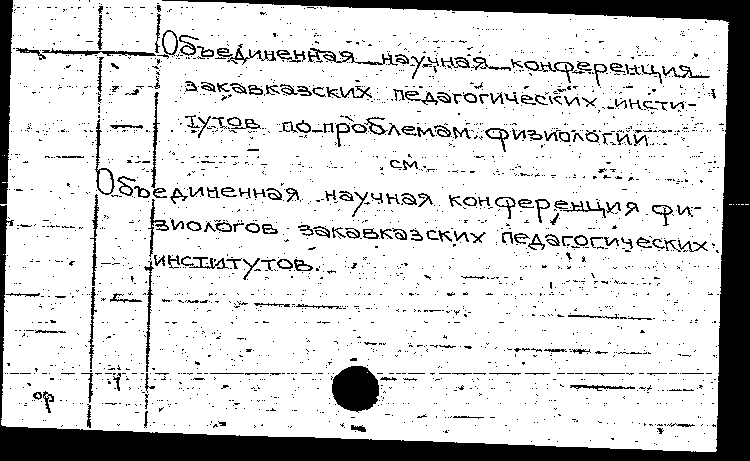 Объединенная научная конференция
закавказских педагогических инсти-
тутов по проблемам физиологии
см.
Объединенная научная конференция фи-
зиологов закавказских педагогических
институтов.
ор